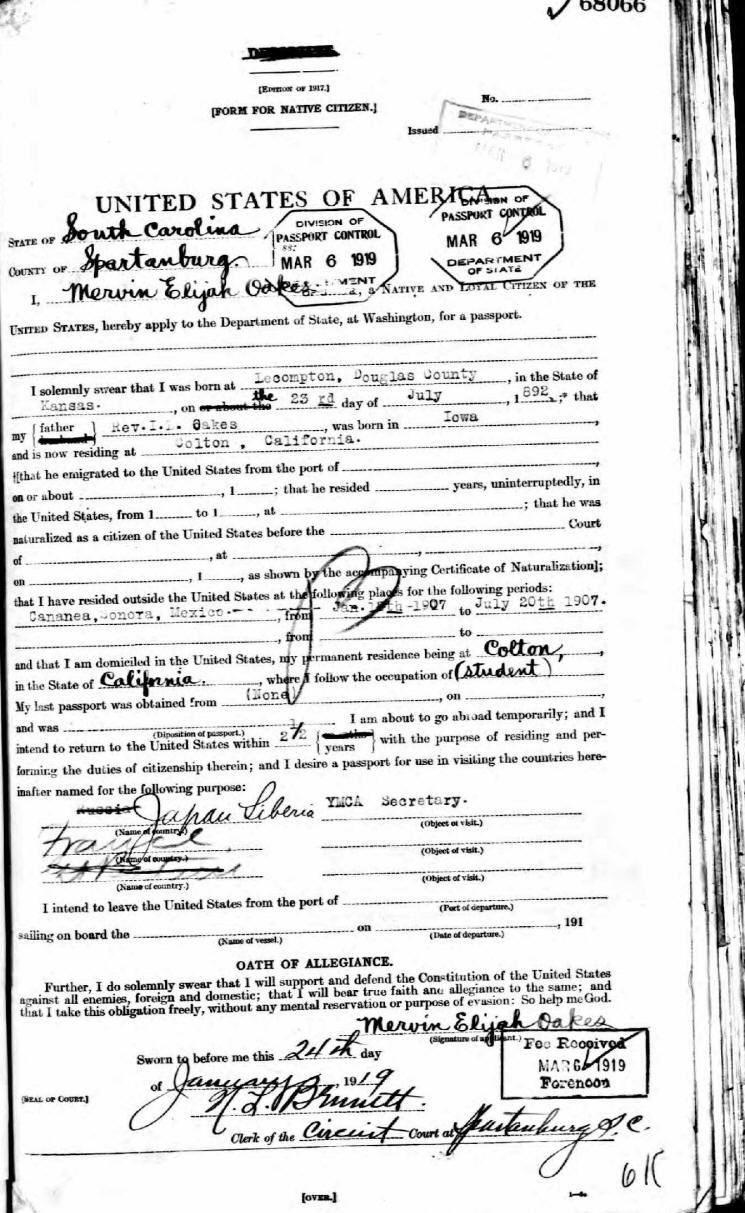 68066
[EDITION OF 1917.]
[FORM FOR NATIVE CITIZEN.]
No.
Issued
UNITED STATES OF AMERICA
STATE OF South Carolina
COUNTY OF Spartanburg
ss:
DIVISION OF
PASSPORT CONTROL
MAR 6 1919
DIVISION OF
PASSPORT CONTROL
MAR 6 1919
DEPARTMENT
OF STATE
I, Mervin Elijah Oakes, a NATIVE AND LOYAL CITIZEN OF THE
UNITED STATES, hereby apply to the Department of State, at Washington, for a passport.
I solemnly swear that I was born at Lecompton, Douglas County, in the State of
Kansas., on or about the the 23 rd day of July, 1892,;* that
my { father } Rev.I.L. Oakes, was born in Iowa,
and is now residing at Colton , California.
†[that he emigrated to the United States from the port of
on or about , 1 ; that he resided years, uninterruptedly, in
the United States, from 1 to 1 , at ; that he was
naturalized as a citizen of the United States before the Court
of , at , ,
on , 1 , as shown by the accompanying Certificate of Naturalization];
that I have resided outside the United States at the following places for the following periods:
Cananea,Sonora, Mexico.-- , from Jan. th-1907 to July 20th 1907.
, from to
and that I am domiciled in the United States, my permanent residence being at Colton,
in the State of California., where I follow the occupation of (student)
My last passport was obtained from (None) , on ,
and was I am about to go abroad temporarily; and I
(Disposition of passport.)
intend to return to the United States within 2 1/2 { years } with the purpose of residing and per-
forming the duties of citizenship therein; and I desire a passport for use in visiting the countries here-
inafter named for the following purpose:
Russia Japan Siberia YMCA Secretary.
(Name of country.) (Object of visit.)
France
(Name of country.) (Object of visit.)
(Name of country.) (Object of visit.)
I intend to leave the United States from the port of
(Port of departure.)
sailing on board the on , 191
(Name of vessel.) (Date of departure.)
OATH OF ALLEGIANCE.
Further, I do solemnly swear that I will support and defend the Constitution of the United States
against all enemies, foreign and domestic; that I will bear true faith and allegiance to the same; and
that I take this obligation freely, without any mental reservation or purpose of evasion: So help me God.
Mervin Elijah Oakes
(Signature of applicant.)
Fee Received
MAR 6 1919
Forenoon
Sworn to before me this 24th day
of January, 1919
[SEAL OF COURT.]
Clerk of the Circuit Court at Spartanburg S.C.
[OVER.]